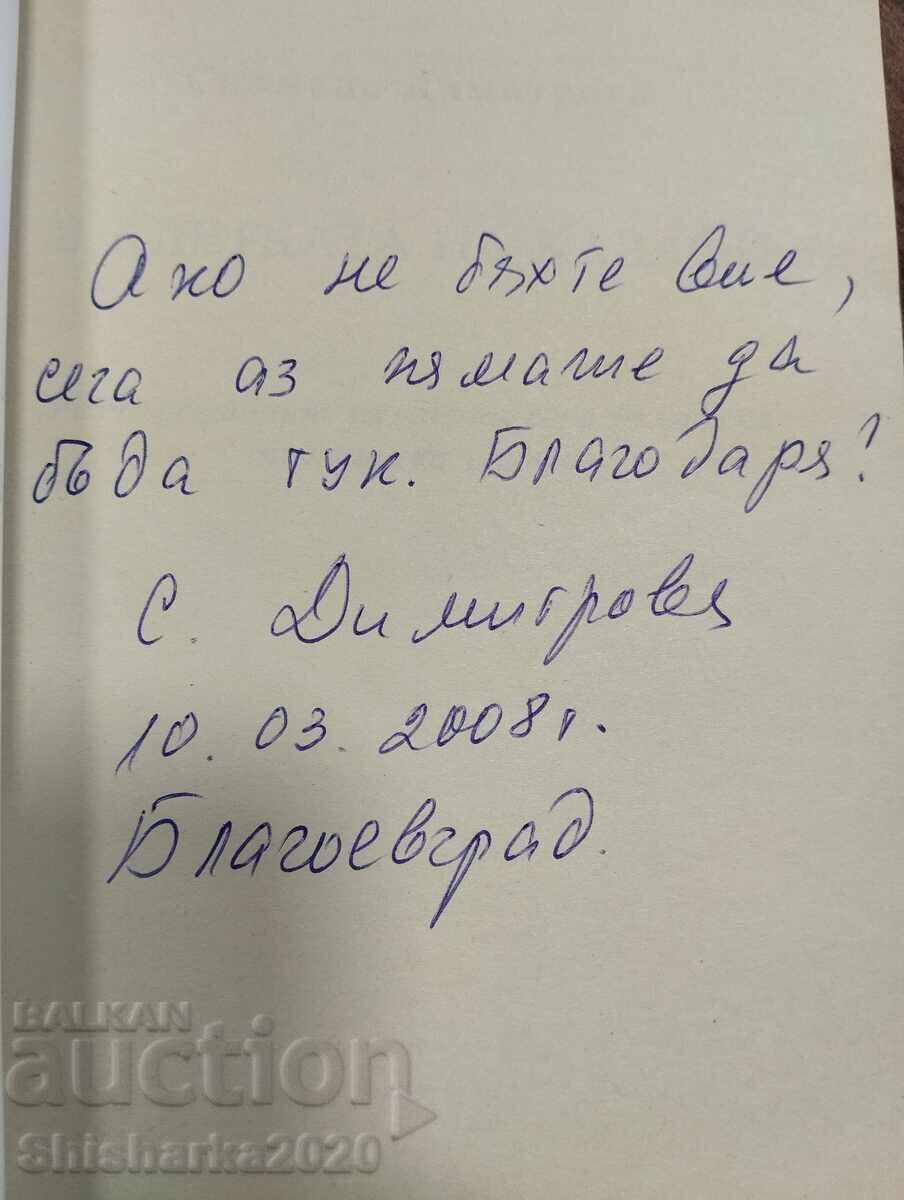 Ако не бяхте вие,
сега аз нямаше да
бъда тук. Благодаря!
С. Димитрова
10.03.2008 г.
Благоевград.
BALKAN
auction
Shisharka2020